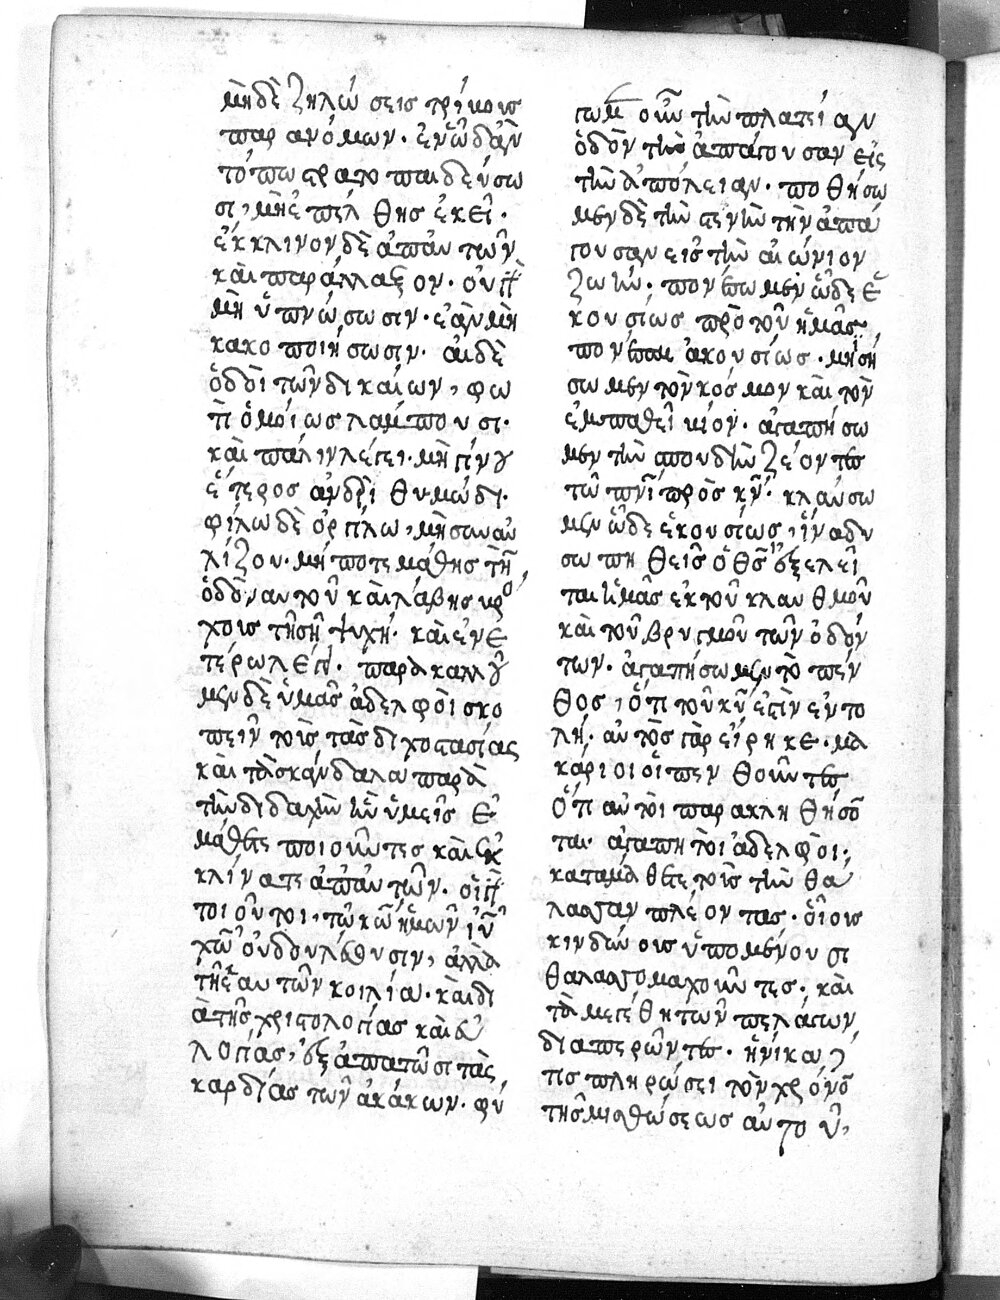 μὴ δὲ ζηλώσεις τρίβοις
παρανόμων· ἐν ᾧ δἂν
τόπω στρατοπαιδεύσω
σι, μὴ ἐπέλθης ἐκεῖ·
ἔκκλινον δὲ ἀπ' αὐτῶν
καὶ παράλλαξον· οὐ γὰρ
μὴ ὑπνώσωσιν· ἐὰν μὴ
κακοποιήσωσιν· αἱ δὲ
ὁδοὶ τῶν δικαίων, φω
τὶ ὁμοίως λάμπουσι·
καὶ πάλιν λέγει· μὴ γίνου
ἕτερος ἀνδρὶ θυμώδι·
φίλω δὲ ὀργίλω, μὴ συναυ
λίζου· μήποτε μάθης τῆ
ὁδῶν αυτοῦ καὶ λάβης βρό
χους τῆ σῆ ψυχῆ· καὶ ἐν ἑ
τέρω λέγει· παρακαλοῦ
μεν δὲ ὑμᾶς ἀδελφοὶ σκο
πεῖν τοὺς τὰς διχοστασίας
καὶ τὰ σκάνδαλα παρὰ
τὴν διδαχὴν ἣν ὑμεῖς ἐ
μάθετε ποιοῦντες καὶ ἐκ
κλίνατε ἀπ' αὐτῶν. οἱ γὰρ
τοιοῦτοι, τῷ κω ἡμῶν ιυ
χω οὐ δουλεύουσιν, ἀλλὰ
τῆ ἑαυτῶν κοιλία· καὶ δι
ὰ τῆς χριστολογίας καὶ εὐ
λογίας, ἐξαπατῶσι τὰς
καρδίας τῶν ἀκάκων. φύ
γωμεν οὖν τὴν πλατείαν
ὁδὸν τὴν ἀπάγουσαν εἰς
τὴν ἀπόλειαν· ποθήσω
μεν δὲ τὴν στενὴν τὴν ἀπά
γουσαν εἰς τὴν αἰώνιον
ζωήν· πονέσωμεν ὧδε ἑ
κουσίως πρὸ τοῦ ἡμᾶς
πονέσαι ἀκουσίως· μισή
σωμεν τὸν κόσμον καὶ τὸν
ἐμπαθεῖ βίον· ἀγαπήσω
μεν τὴν σπουδὴν ζέοντες
τῷ πνι πρὸς κν· κλαύσω
μεν ὧδε ἑκουσίως, ἵνα δυ
σωπηθεὶς ὁ θς ἐξελεῖ
ται ἡμᾶς ἐκ τοῦ κλαυθμοῦ
καὶ τοῦ βρυγμοῦ τῶν ὀδόν
των. ἀγαπήσωμεν τὸ πέν
θος, ὅτι τοῦ κυ ἐστὶν ἐντο
λή· αὐτὸς γὰρ εἴρηκε· μα
κάριοι οἱ πενθοῦντες
ὅτι αὐτοὶ παρακληθήσον
ται· ἀγαπητοὶ ἀδελφοὶ,
καταμάθετε τοὺς τὴν θά
λασσαν πλέοντας· οἵους
κινδύνους ὑπομένουσι
θαλασσομαχοῦντες· καὶ
τὰ μεγέθη τῶν πελάγων
διαπερῶντες. ἡνίκα
τις πληρώσει τὸν χρόνον
τῆς μισθώσεως αὐτοῦ,